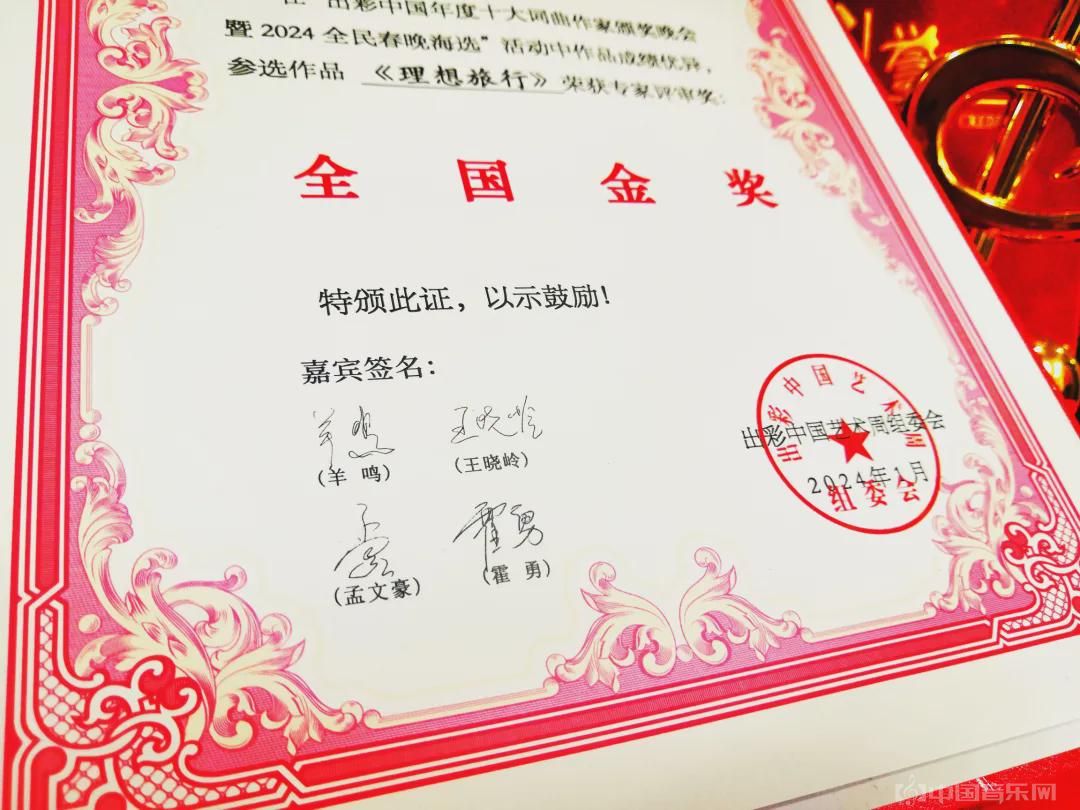 在“出彩中国年度十大词曲作家颁奖晚会
暨2024全民春晚海选”活动中作品成绩优异，
参选作品《理想旅行》荣获专家评审奖：
全国金奖
特颁此证，以示鼓励！
嘉宾签名：
羊鸣 王晓岭
(羊 鸣) (王晓岭)
霍勇
(孟文豪) (霍 勇)
出彩中国艺术周
组委会
出彩中国艺术周组委会
2024年1月
誉
中国音乐网